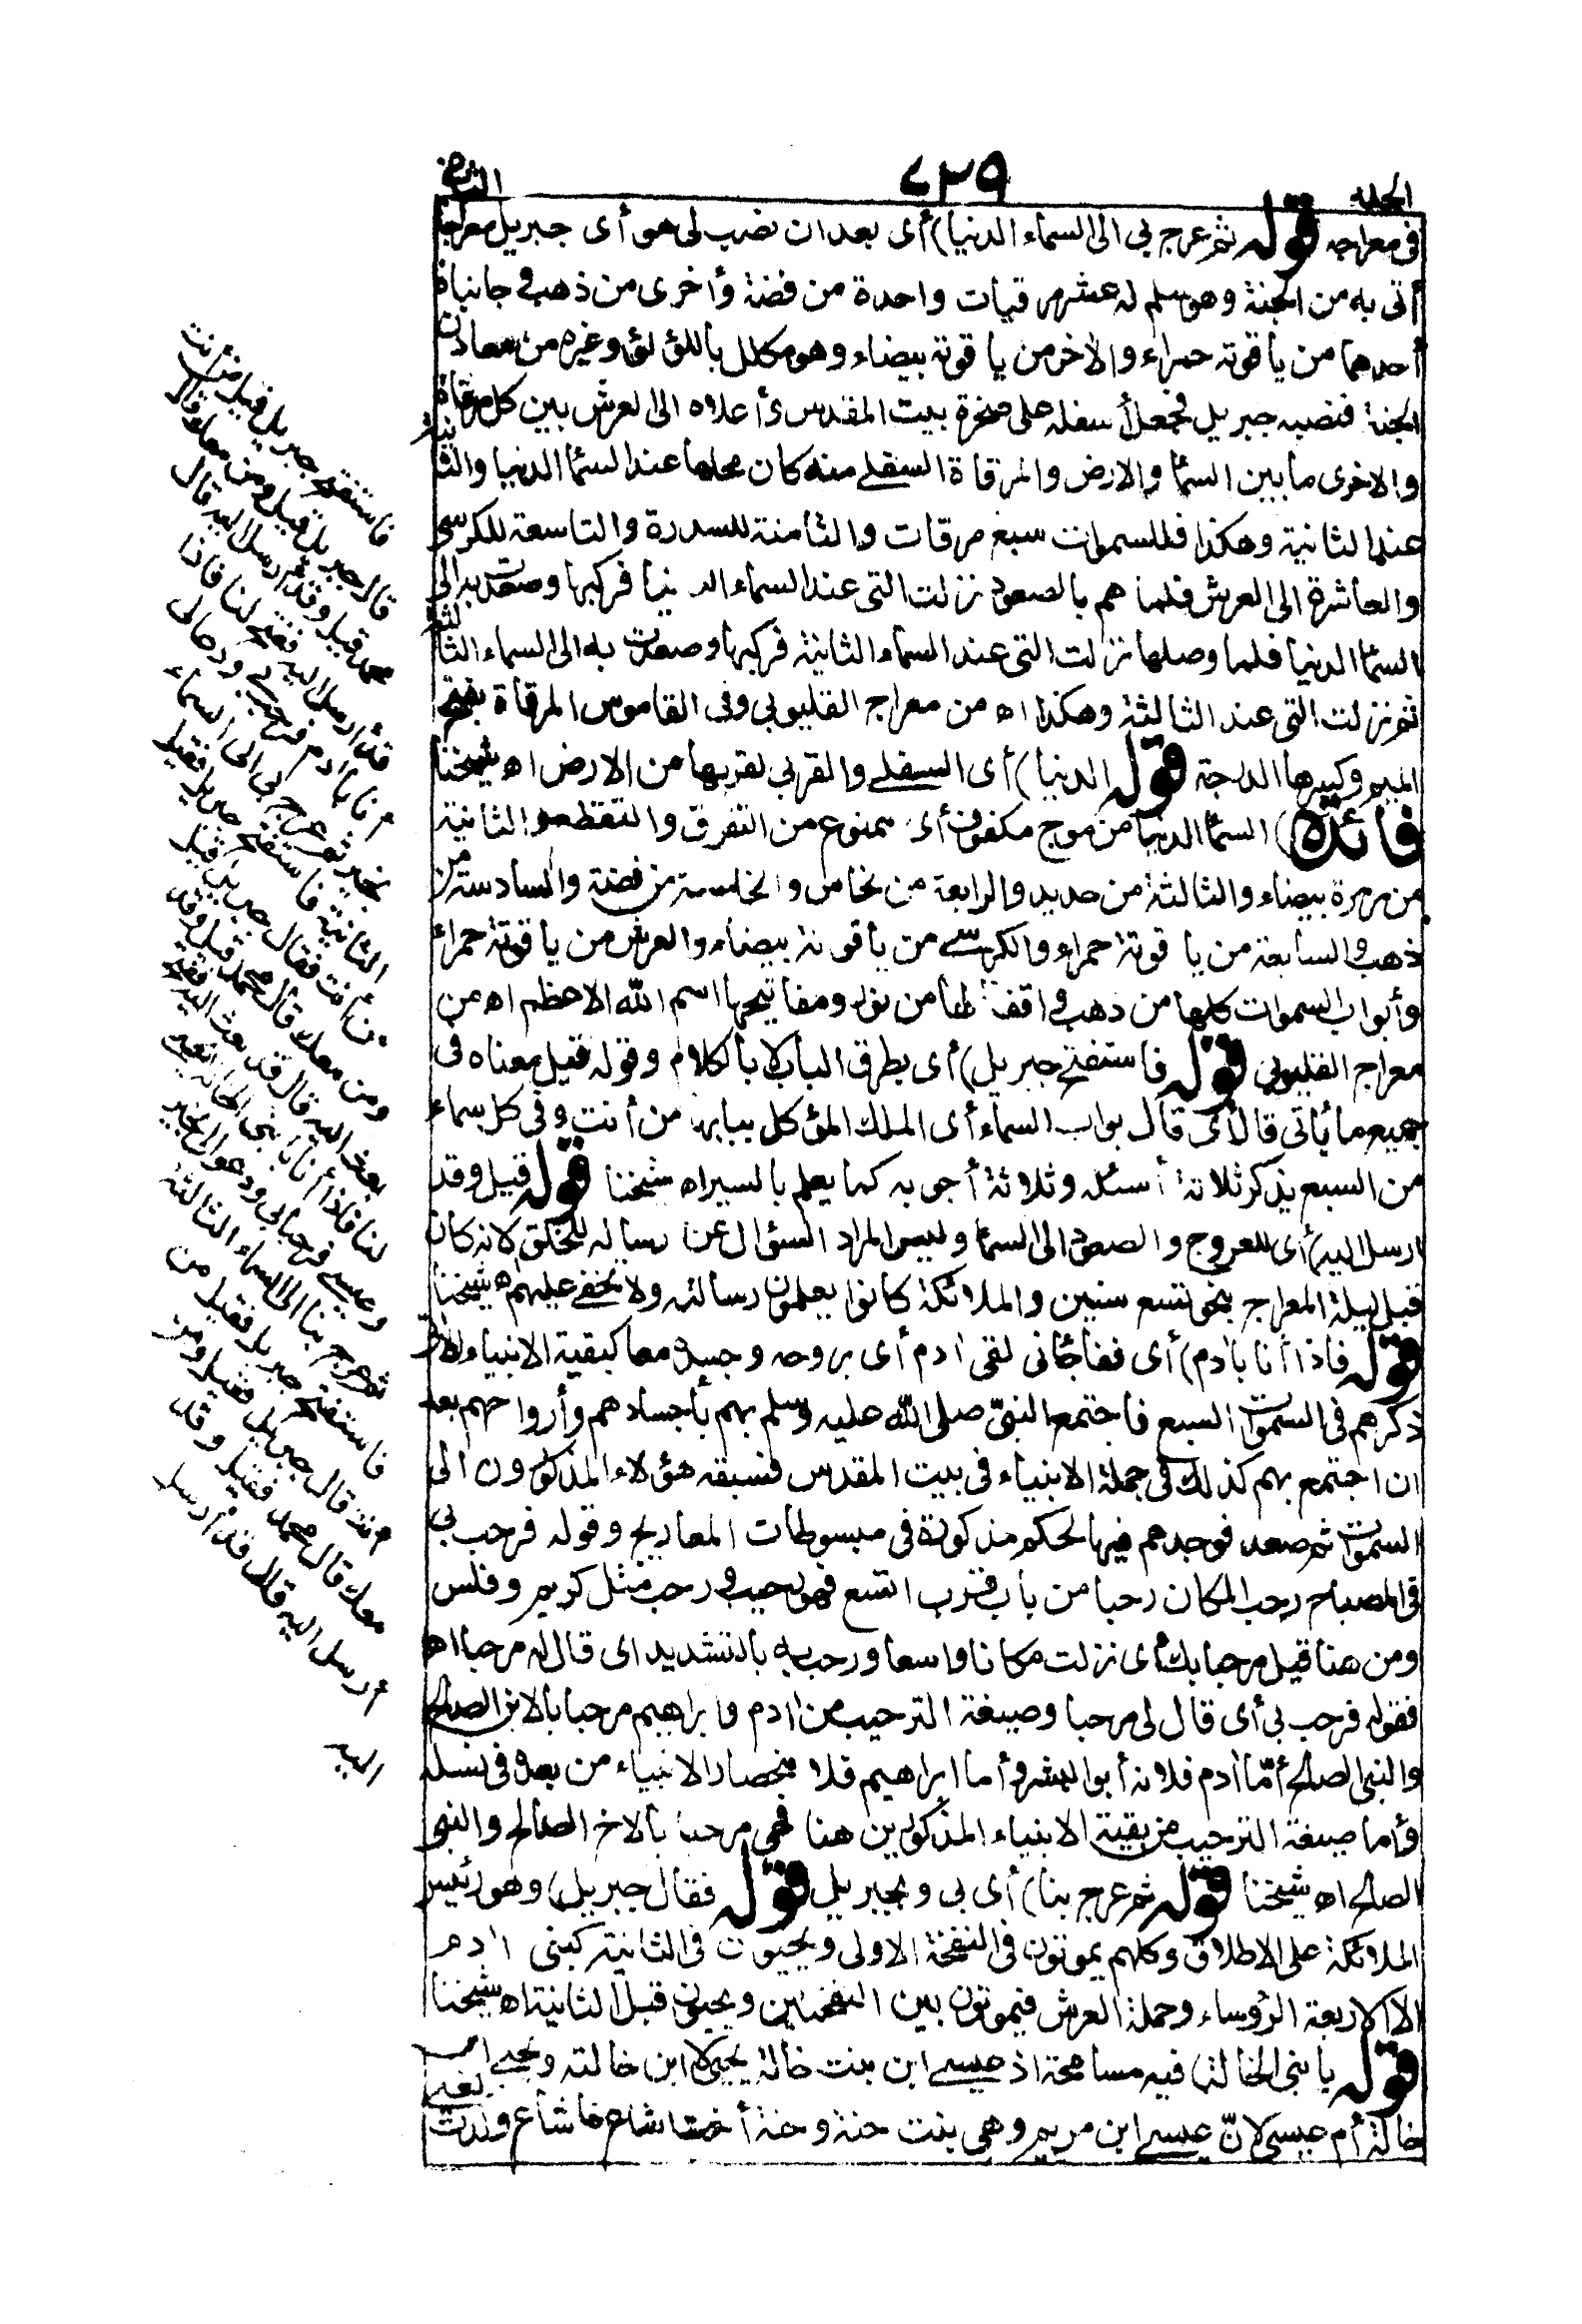 الجلد ٤٣٩ الثانى
فى معراجه قوله ثم عرج بى الى السماء الدنيا) أى بعد ان نصب لى هو أى جبريل معراجا
أتى به من الجنة وهو سلم له عشر مرقيات واحدة من فضة وأخرى من ذهب و جانباه
أحدهما من ياقوتة حمراء والاخر من ياقوتة بيضاء وهو مكلل باللؤلؤ وغيره من معادن
الجنة فنصبه جبريل فجعل أسفله على صخرة بيت المقدس وأعلاه الى العرش بين كل مرقاة
والاخرى ما بين السما والارض والمرقاة السفلى منه كان محلها عند السما الدنيا والثانية
عند الثانية وهكذا فللسموات سبع مرقات والثامنة للسدرة والتاسعة للكرسى
والعاشرة الى العرش فلما هم بالصعود نزلت التى عند السماء الدنيا فركبها وصعدت به الى
السما الدنيا فلما وصلها نزلت التى عند السماء الثانية فركبها وصعدت به الى السماء الثانية
ثم نزلت التى عند الثالثة وهكذا اه من معراج القليوبى وفى القاموس المرقاة بفتح
الميم وكسرها الدرجة قوله الدنيا) أى السفلى والقربى لقربها من الارض اه شيخنا
فائدة) السما الدنيا من موج مكفوف أى ممنوع من التفرق والتقطع والثانية
من مرمرة بيضاء والثالثة من حديد والرابعة من نحاس والخامسة من فضة والسادسة من
ذهب والسابعة من ياقوتة حمراء والكرسى من ياقوتة بيضاء والعرش من ياقوتة حمراء
وأبواب السموات كلها من ذهب و اقفالها من نور ومفاتيحها اسم الله الاعظم اه من
معراج القليوبى قوله فاستفتح جبريل) أى بطرق الباب لا بالكلام وقوله قيل معناه فى
جميع ما يأتى قال أى قال بواب السماء أى الملك المؤكل ببابها من أنت وفى كل سماء
من السبع يذكر ثلاثة أسئلة وثلاثة أجوبه كما يعلم بالسبر اه شيخنا قوله قيل وقد
ارسل اليه) أى للعروج والصعود الى السما وليس المراد السؤال عن رسالة للخلق لانه كان
قبل ليلة المعراج بنحو تسع سنين والملائكة كانوا يعلمون رسالته ولا تخفى عليهم اه شيخنا
قوله فاذا أنا بادم) أى ففاجأنى لقى ادم أى بروحه وجسده معا كبقية الانبياء الاتى
ذكرهم فى السموات السبع فاجتمع النبىّ صلى الله عليه وسلم بهم بأجسادهم وأرواحهم بعد
ان اجتمع بهم كذلك فى جملة الانبياء فى بيت المقدس فسبقه هؤلاء المذكورون الى
السموات ثم صعد فوجدهم فيها لحكم مذكورة فى مبسوطات المعاريج وقوله فرحب بى
فى المصباح رحب المكان رحبا من باب قرب اتسع فهو رحيب و رحب مثل كريم وفلس
ومن هنا قيل مرحبا بك أى نزلت مكانا واسعا ورحب به بالتشديد اى قال له مرحبا اه
فقوله فرحب بى أى قال لى مرحبا وصيغة الترحيب من ادم وابراهيم مرحبا بالابن الصالح
والنبى الصالح أمّا ادم فلانه أبو البشر وأما ابراهيم فلانحصار الانبياء من بعده فى نسله
وأما صيغة الترحيب من بقية الانبياء المذكورين هنا فهى مرحبا بالاخ الصالح والنبى
الصالح اه شيخنا قوله ثم عرج بنا) أى بى وبجبريل قوله فقال جبريل) وهو رئيس
الملائكة على الاطلاق وكلهم يموتون فى النفخة الاولى ويحيون فى الثانية كبنى ادم
الا الاربعة الرؤساء وحملة العرش فيموتون بين النفختين ويحيون قبل الثانية اه شيخنا
قوله يا بنى الخالة) فيه مسامحة اذ عيسى ابن بنت خالة يحيى لا ابن خالته ويحيى ابن
خالة أم عيسى لانّ عيسى ابن مريم وهى بنت حنة وحنة أختها اشاع فاشاع ولدت
فاستفتح جبريل قيل من أنت
قال جبريل قيل ومن معك قال
محمد قيل وقد أرسل اليه قال
قد أرسل اليه ففتح لنا فاذا
أنا بادم فرحب بى ودعا لى
بخير ثم عرج بى الى السماء
الثانية فاستفتح جبريل فقيل
من أنت فقال جبريل قيل
ومن معك قال محمد قيل وقد
بعث اليه قال قد بعث اليه ففتح
لنا فاذا أنا بابنى الخالة يحيى
وعيسى فرحبا بى ودعوا لى بخير
ثم عرج بنا الى السماء الثالثة
فاستفتح جبريل فقيل من
أنت قال جبريل فقيل ومن
معك قال محمد فقيل وقد
أرسل اليه قال قد أرسل
اليه